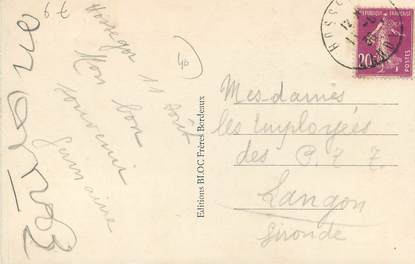 Hossegor 11 août
Mon bon
souvenir
Germaine
79
40
Editions BLOC Frères Bordeaux
HOSSE
RÉPUBLIQUE FRANÇAISE
20
POSTES
Mesdames
les Employées
des P.T.T.
Langon
Gironde